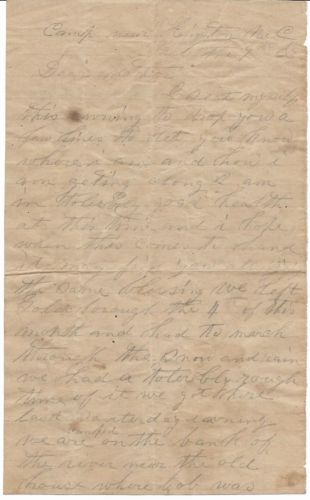 Camp near Kinston N.C.
the 9th
Dear
I seat myself
this evening to drop you a
few lines to let you know
where i am and how i
am geting along I am
in tolerbly good health
at this time and i hope
when this comes to hand
it may find you
the same blessing we left
the 4th of this
month and had to march
through the snow and rain
we had a tolerbly rough
time of it we got here
last
we are camped on the bank of
the river near the old
house where bob was